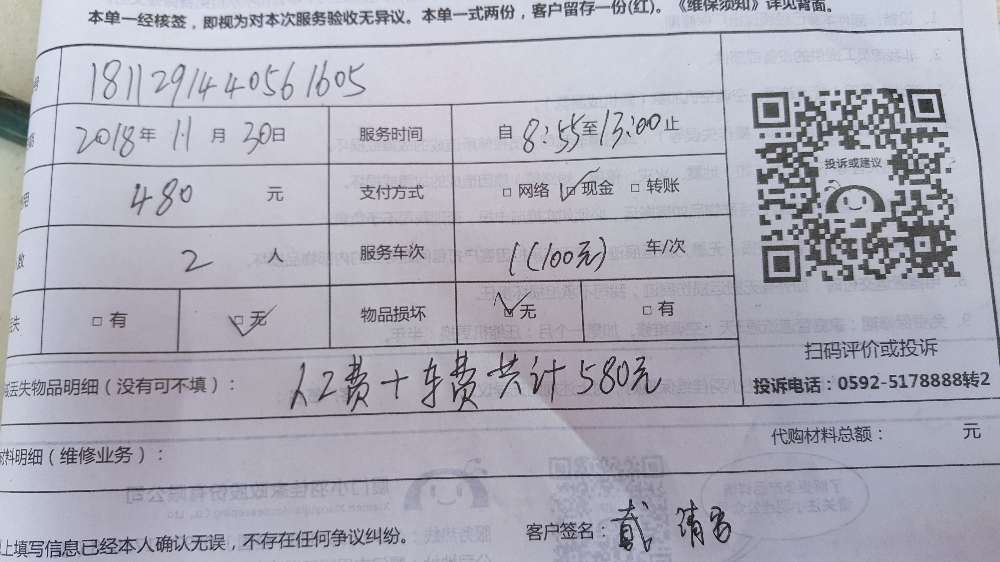 本单一经核签，即视为对本次服务验收无异议。本单一式两份，客户留存一份(红)。《维保须知》详见背面。
1811291440561605
2018年 11月 30日 服务时间 自 8:55至13:00止
480 元 支付方式 □ 网络 ☑ 现金 □ 转账
2 人 服务车次 1(100元) 车/次
□ 有 ☑ 无 物品损坏 ☑ 无 □ 有
投诉或建议
扫码评价或投诉
丢失物品明细（没有可不填）： 人工费+车费共计580元
投诉电话：0592-5178888转2
代购材料总额： 元
材料明细（维修业务）：
上填写信息已经本人确认无误，不存在任何争议纠纷。 客户签名：